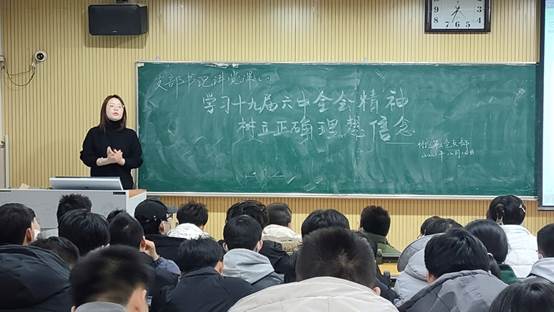 支部书记讲党课
学习十九届六中全会精神
树立正确理想信念